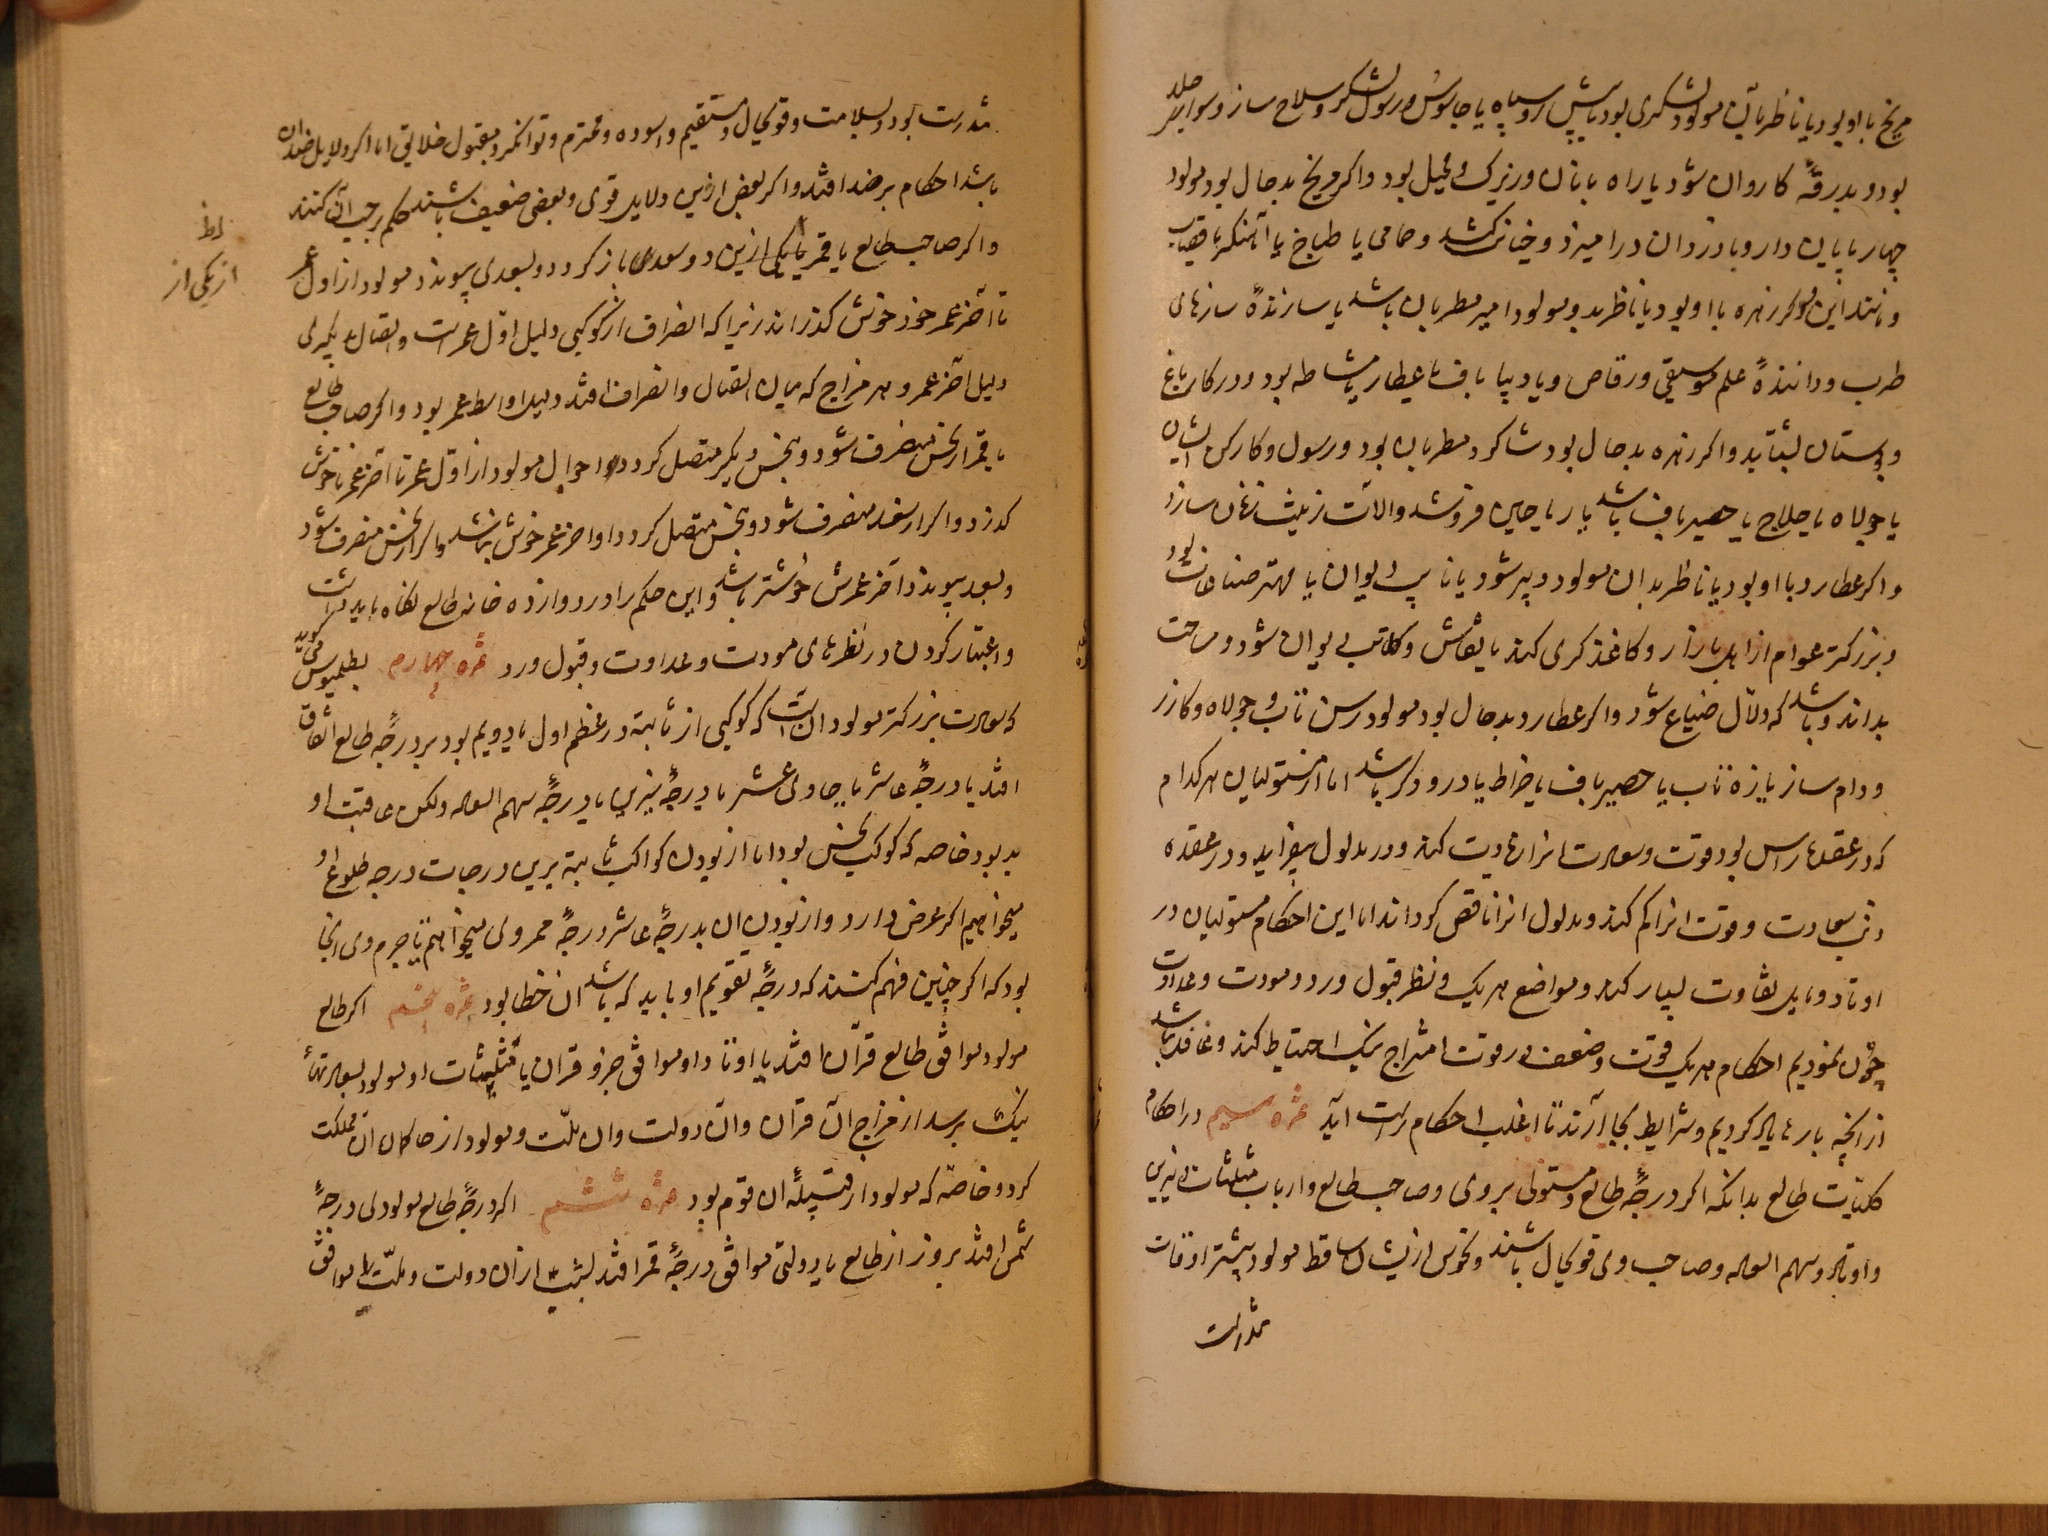 مریخ با او بود یا ناظر باین مولود لشکری بود یا پیش رو سپاه یا جاسوس و رسول لشکر و سلاح ساز و سوار جلد
بود و بدرقهٔ کاروان شود یا راه بانان و زیرک و محیل بود و اکر مریخ بدحال بود مولود
چهارپایان دار و با دزدان در امیزد و خیانت کشد و حمامی یا طباخ یا آهنکر یا قصاب
و مانند این بود و اکر زهره با او بود یا ناظر بدو مولود امیر مطربان باشد یا سازندهٔ سازهای
طرب و دانندهٔ علم موسیقی و رقاص و یا دیبا باف یا عطار یا مشاطه بود و در کار باغ
و بستان بشتابد و اکر زهره بدحال بود شاکرد مطربان بود و رسول و کارکن ایشان
یا جولاه یا حلاج یا حصیر باف باشد یا ریاحین فروشد و الات زینت زنان سازد
و اکر عطارد با او بود یا ناظر بدان مولود دبیر شود یا نایب دیوان یا مهتر صناعات بود
و بزرکتر عوام از اهل بازار و کاغذ کری کند یا نقاش و کاتب دیوان شود و مساحت
بداند و باشد که دلال ضیاع شود و اکر عطارد بدحال بود مولود رسن تاب و جولاه و کازر
و دام ساز یا زه تاب یا حصیر باف یا خراط یا درودکر باشد اما از مستولیان هر کدام
که در عقدهٔ راس بود قوت و سعادت انرا زیادت کند و در مدلول بیفزاید و در عقده
ذنب سعادت و قوت انرا کم کند و مدلول انرا ناقص کرداند اما این احکام مستولیان در
اوتاد و مایل تفاوت بسیار کند و مواضع هر یک و نظر قبول و رد و مودت و عداوت
چون نمودیم احکام هر یک قوت و ضعف در وقت امتزاج نیک احتیاط کند و غافل نباشد
از انچه بارها یاد کردیم و شرایط بجا آرند تا اغلب احکام راست آید ثمره سیم در احکام
کلیات طالع بدانکه اکر درجهٔ طالع و مستولی بر وی و صاحب طالع و ارباب مثلثات و نیرین
و اوتاد و سهم السعاده و صاحب وی قوی حال باشند و نحوس ازیشان ساقط مولود بیشتر اوقات
تندرست
تندرست بود و بسلامت و قوی حال و مستقیم و اسوده و محترم و توانکر و مقبول خلایق اما اکر دلایل ضد ان
باشد احکام بر ضد افتد و اکر بعضی ازین دلایل قوی و بعضی ضعیف باشند حکم بر حسب آن کنند
و اکر صاحب طالع یا قمر یا یکی ازین دو سعد باز کردد و بسعدی پیوندد مولود از اول عمر
تا آخر عمر خود خوش کذراند زیرا که انصراف از کوکبی دلیل اول عمر است و اتصال بدیکری
دلیل آخر عمر و هر مزاج که میان اتصال و انصراف افتد دلیل اواسط عمر بود و اکر صاحب طالع
یا قمر از نحس منصرف شود و بنحس دیکر متصل کردد احوال مولود از اول عمر تا آخر عمر ناخوش
کذرد و اکر از سعد منصرف شود و بنحس متصل کردد اواخر عمر خوش نباشد و اکر از نحس منصرف شود
و بسعد پیوندد آخر عمرش خوشتر باشد و این حکم را در دوازده خانه طالع نکاه باید داشت
و اعتبار کردن در نظرهای مودت و عداوت و قبول و رد ثمره چهارم بطلمیوس می کوید
که سعادت بزرکتر مولود ان است که کوکبی از ثابته در عظم اول یا دویم بود بر درجهٔ طالع اتفاق
افتد یا درجهٔ عاشر یا حادی عشر یا درجهٔ نیرین یا درجهٔ سهم السعاده ولکن عاقبت او
بد بود خاصه که کوکب نحس بود اما از بودن کواکب ثابته برین درجات درجه طلوع او
میخواهیم اکر عرض دارد و از بودن ان بدرجهٔ عاشر درجهٔ ممر وی میخواهیم تا جرم وی انجا
بود که اکر چنین فهم کنند که درجهٔ تقویم او باید که باشد ان خطا بود ثمره پنجم اکر طالع
مولود موافق طالع قران افتد یا اوتاد او موافق جزو قران یا مثلثات او مولود بسعادتهای
نیک برسد از مزاج آن قران و آن دولت و ان ملت و مولود از حاکمان ان مملکت
کردد خاصه که مولود از قبیلهٔ ان قوم بود ثمره ششم اکر درجهٔ طالع مولودی درجهٔ
شمس افتد بروز از طالع یا دولتی موافق درجهٔ قمر افتد بشب از ان دولت و ملت موافق
از یکی از